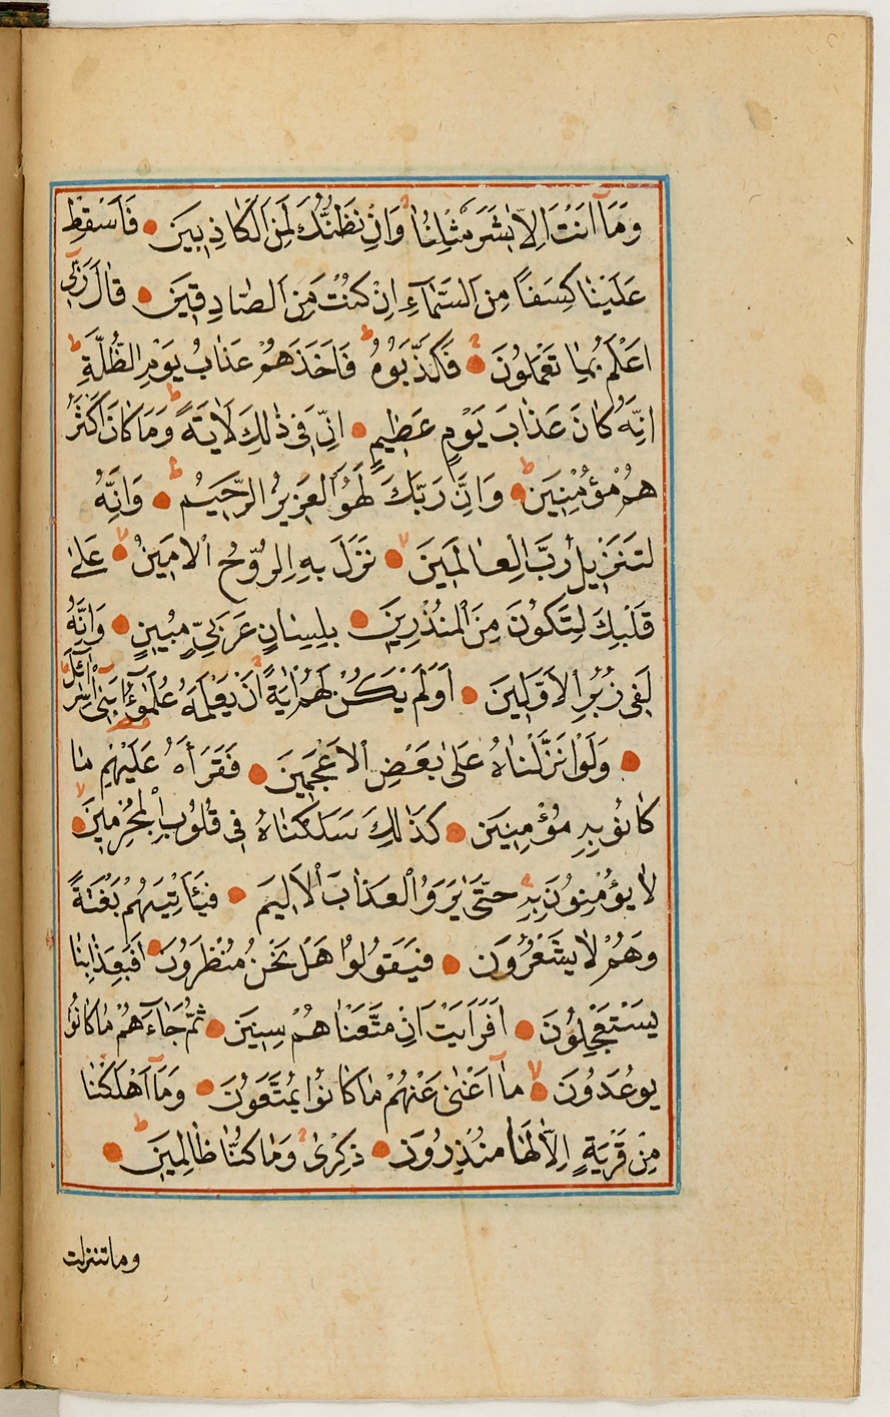 وَمَآ اَنْتَ اِلَّا بَشَرٌ مِثْلُنَا وَاِنْ نَظُنُّكَ لَمِنَ الْكَاذِبِينَ فَاَسْقِطْ
عَلَيْنَا كِسَفًا مِنَ السَّمَآءِ اِنْ كُنْتَ مِنَ الصَّادِقِينَ قَالَ رَبِّى
اَعْلَمُ بِمَا تَعْمَلُونَ فَكَذَّبُوهُ فَاَخَذَهُمْ عَذَابُ يَوْمِ الظُّلَّةِ
اِنَّهُ كَانَ عَذَابَ يَوْمٍ عَظِيمٍ اِنَّ فِى ذٰلِكَ لَاٰيَةً وَمَا كَانَ اَكْثَرُ
هُمْ مُؤْمِنِينَ وَاِنَّ رَبَّكَ لَهُوَ الْعَزِيزُ الرَّحِيمُ وَاِنَّهُ
لَتَنْزِيلُ رَبِّ الْعَالَمِينَ نَزَلَ بِهِ الرُّوحُ الْاَمِينُ عَلٰى
قَلْبِكَ لِتَكُونَ مِنَ الْمُنْذِرِينَ بِلِسَانٍ عَرَبِىٍّ مُبِينٍ وَاِنَّهُ
لَفِى زُبُرِ الْاَوَّلِينَ اَوَلَمْ يَكُنْ لَهُمْ اٰيَةً اَنْ يَعْلَمَهُ عُلَمٰٓؤُا بَنِٓى اِسْرَٓائِلَ
وَلَوْ نَزَّلْنَاهُ عَلٰى بَعْضِ الْاَعْجَمِينَ فَقَرَأَهُ عَلَيْهِمْ مَا
كَانُوا بِهِ مُؤْمِنِينَ كَذٰلِكَ سَلَكْنَاهُ فِى قُلُوبِ الْمُجْرِمِينَ
لَا يُؤْمِنُونَ بِهِ حَتّٰى يَرَوُا الْعَذَابَ الْاَلِيمَ فَيَأْتِيَهُمْ بَغْتَةً
وَهُمْ لَا يَشْعُرُونَ فَيَقُولُوا هَلْ نَحْنُ مُنْظَرُونَ اَفَبِعَذَابِنَا
يَسْتَعْجِلُونَ اَفَرَاَيْتَ اِنْ مَتَّعْنَاهُمْ سِنِينَ ثُمَّ جَآءَهُمْ مَا كَانُوا
يُوعَدُونَ مَآ اَغْنٰى عَنْهُمْ مَا كَانُوا يُمَتَّعُونَ وَمَآ اَهْلَكْنَا
مِنْ قَرْيَةٍ اِلَّا لَهَا مُنْذِرُونَ ذِكْرٰى وَمَا كُنَّا ظَالِمِينَ
وما تنزلت